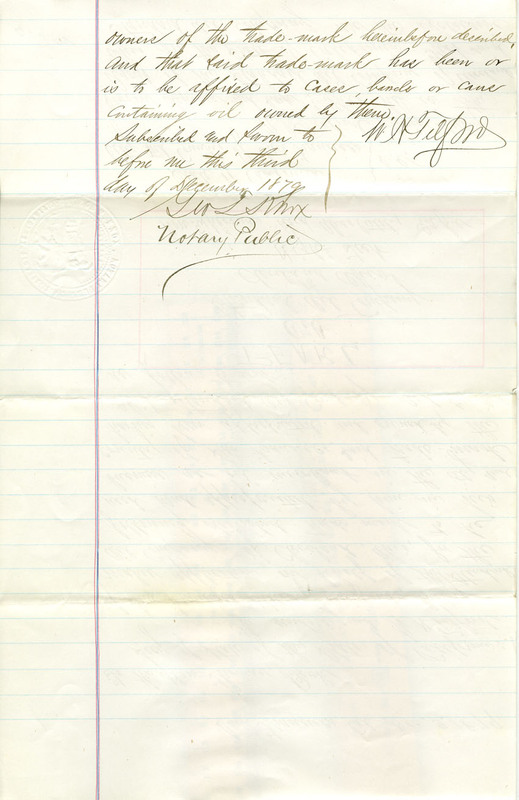 owners of the trade-mark hereinbefore described,
and that said trade-mark has been or
is to be affixed to cases, or cans
containing oil owned by them.
Subscribed and Sworn to
before me this third
day of December 1879
W H Tilford
Geo L Knox
Notary Public